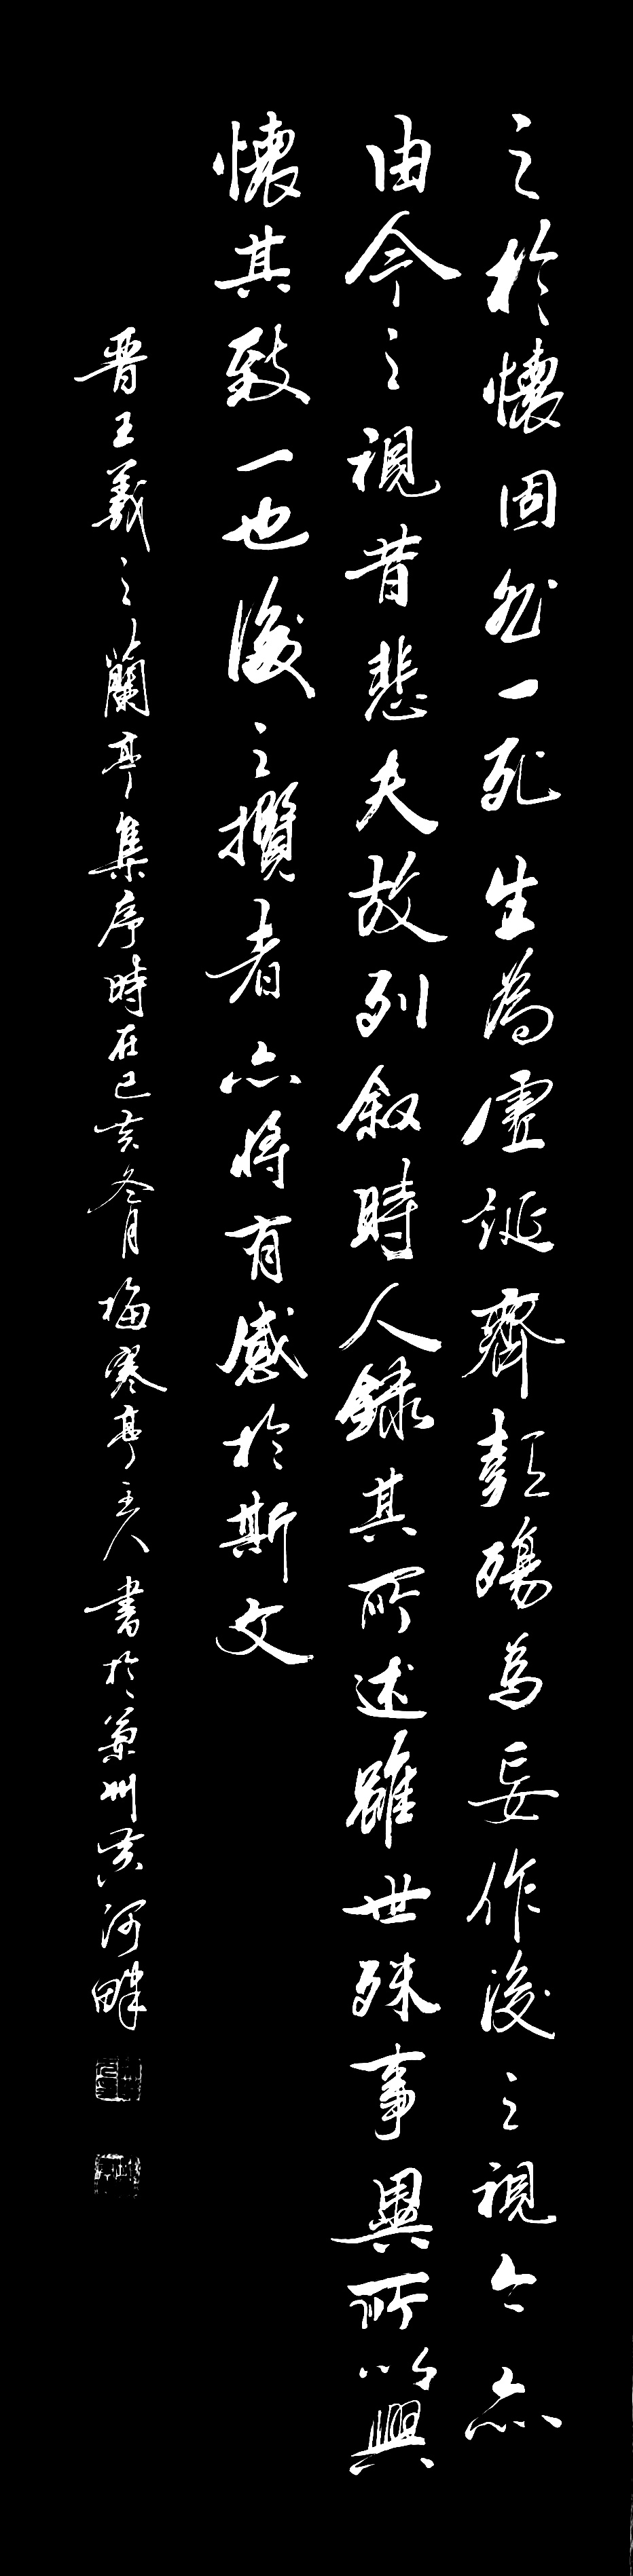 之於懷固然一死生為虛誕齊彭殤為妄作後之視今亦
由今之視昔悲夫故列叙時人錄其所述雖世殊事異所以興
懷其致一也後之攬者亦將有感於斯文
晋王羲之蘭亭集序時在己亥冬月梅寒亭主人書於蘭州黄河畔